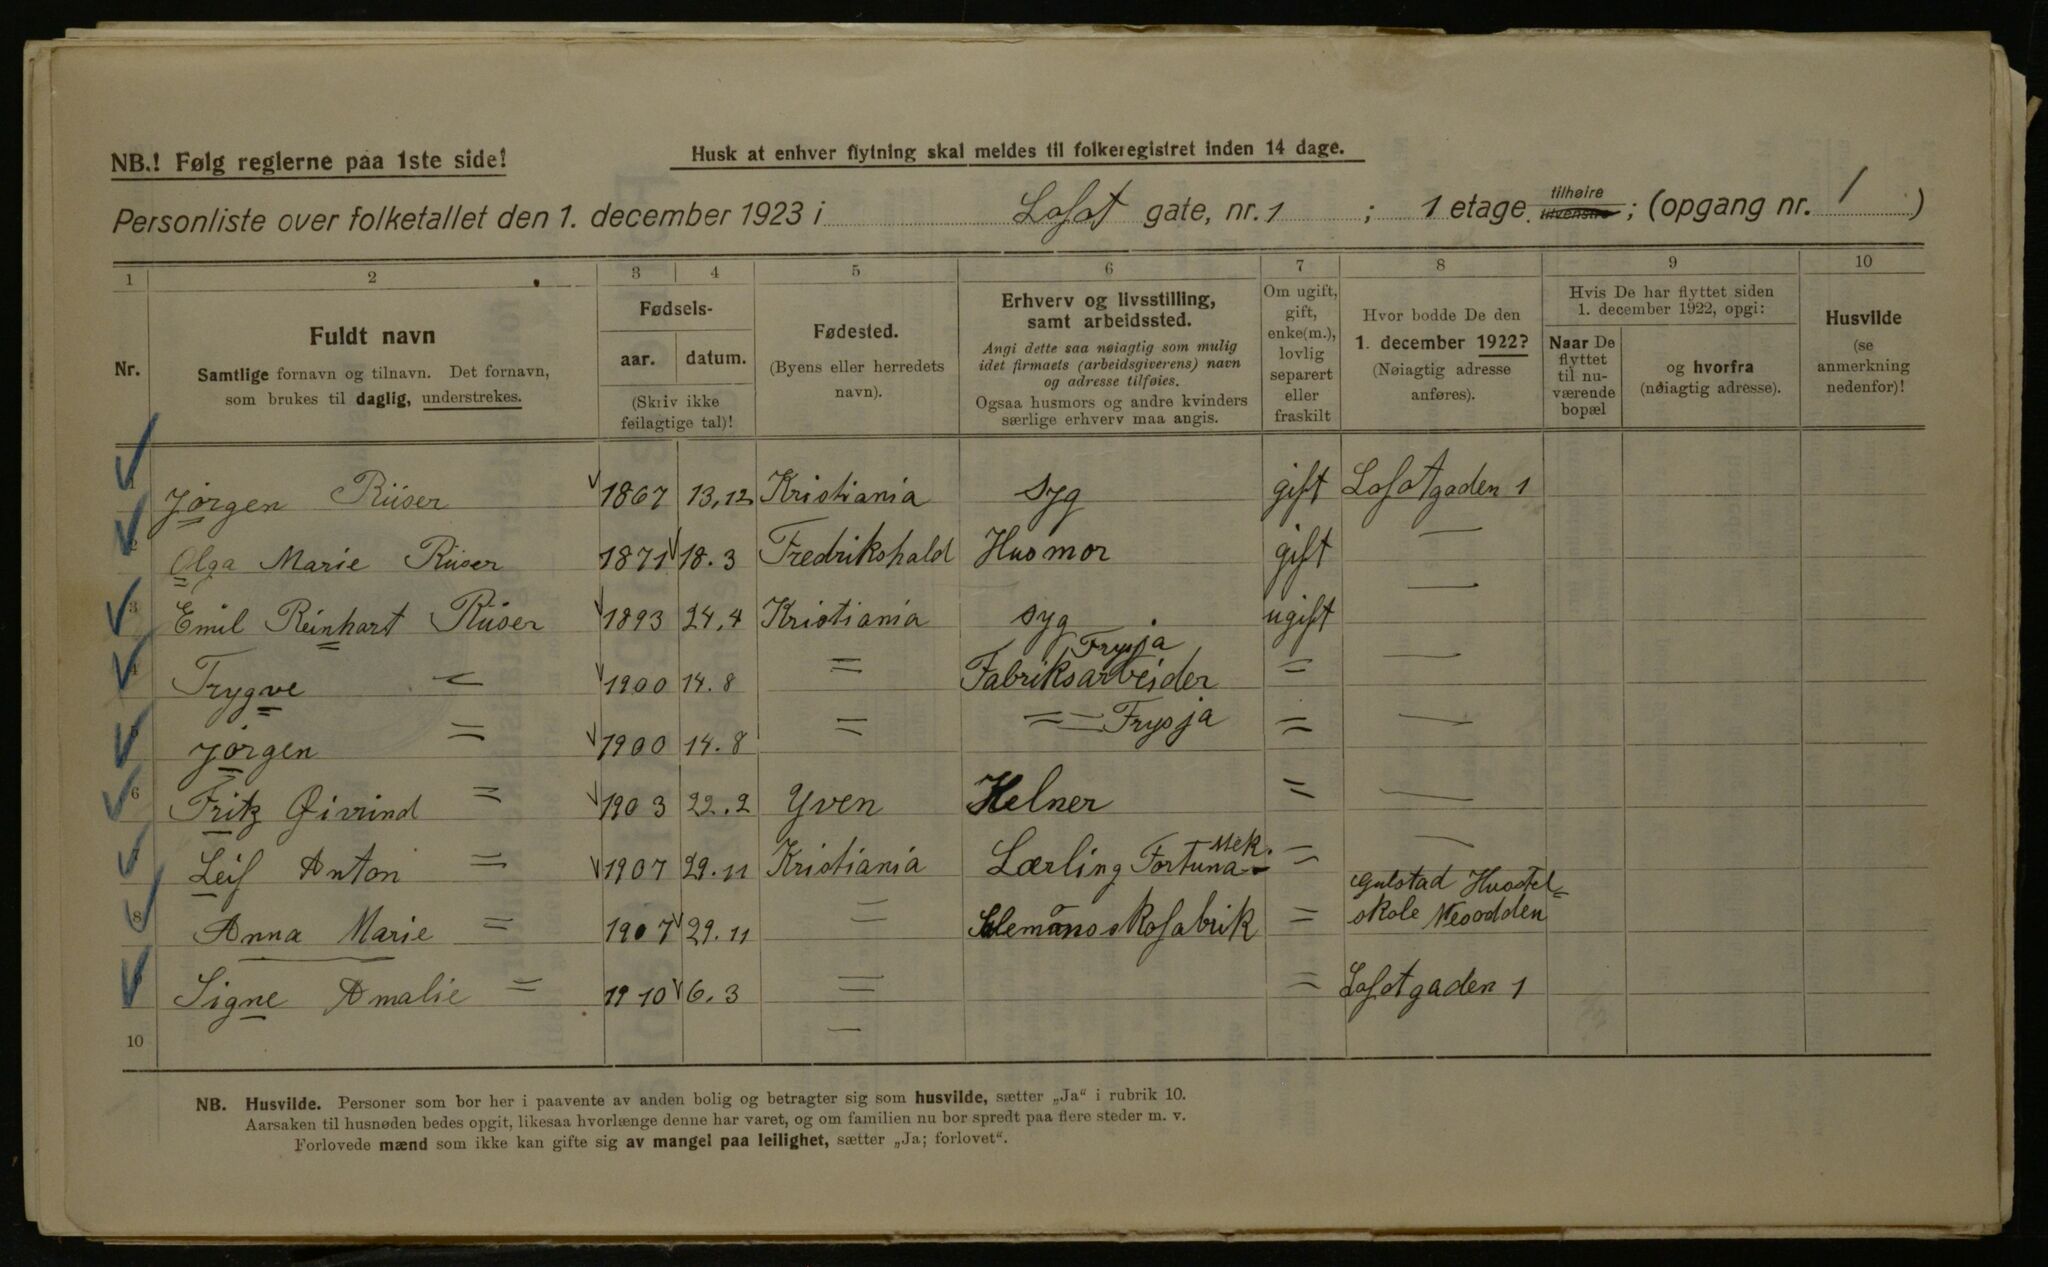 NB.! Følg reglerne paa 1ste side!
Husk at enhver flytning skal meldes til folkeregistret inden 14 dage.
Personliste over folketallet den 1. december 1923 i Lofot gate, nr. 1 ; 1 etage. tilhøire tilvenstre ; (opgang nr. 1 )
1 2 3 4 5 6 7 8 9 10
Nr.
Fuldt navn
Samtlige fornavn og tilnavn. Det fornavn,
som brukes til daglig, understrekes.
Fødsels-
aar. datum.
(Skriv ikke
feilagtige tal)!
Fødested.
(Byens eller herredets
navn).
Erhverv og livsstilling,
samt arbeidssted.
Angi dette saa nøiagtig som mulig
idet firmaets (arbeidsgiverens) navn
og adresse tilføies.
Ogsaa husmors og andre kvinders
særlige erhverv maa angis.
Om ugift,
gift,
enke(m.),
lovlig
separert
eller
fraskilt
Hvor bodde De den
1. december 1922?
(Nøiagtig adresse
anføres).
Hvis De har flyttet siden
1. december 1922, opgi:
Naar De
flyttet
til nu-
værende
bopæl
og hvorfra
(nøiagtig adresse).
Husvilde
(se
anmerkning
nedenfor)!
1 Jørgen Rüser 1867 13,12 Kristiania syg gift Lofotgaden 1
2 Olga Marie Rüser 1871 18.3 Fredrikshald Husmor gift —
3 Emil Reinhart Rüser 1893 24,4 Kristiania syg ugift —
4 Trygve = 1900 14.8 = Fabriksarbeider Frysja = —
5 Jørgen = 1900 14.8 = =— Frysja = —
6 Fritz Øivind = 1903 22.2 Yven Kelner = —
7 Leif Anton = 1907 29.11 Kristiania Lærling Fortuna Mek. = —
8 Anna Marie = 1907 29.11 = skofabrik = Gulstad Husstel=
skole Nesodden
9 Signe Amalie = 1910 6.3 = = Lofotgaden 1
10 =
NB. Husvilde. Personer som bor her i paavente av anden bolig og betragter sig som husvilde, sætter „Ja“ i rubrik 10.
Aarsaken til husnøden bedes opgit, likesaa hvorlænge denne har varet, og om familien nu bor spredt paa flere steder m. v.
Forlovede mænd som ikke kan gifte sig av mangel paa leilighet, sætter „Ja; forlovet“.